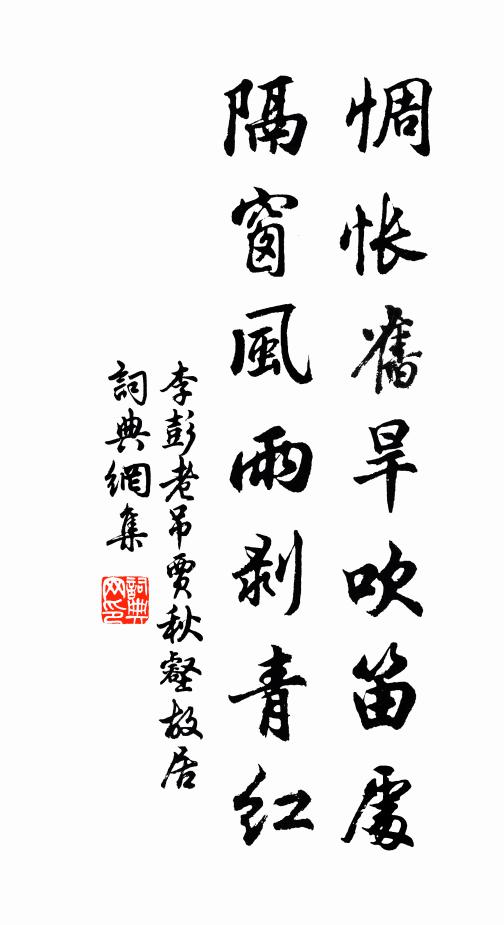 惆悵舊旱吹笛處
隔窗風雨剥青紅
李彭老吊賈秋壑故居
詞典網集
詞典網印